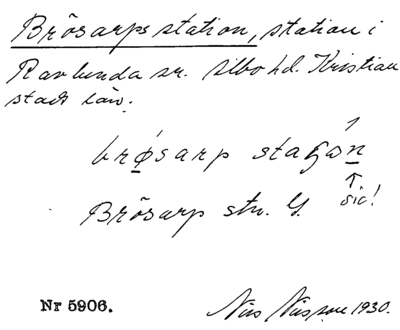 Brösarps station, station i
Ravlunda sn. Albo hd. Kristian
stads län.
brø̱sarp staʃɷṉ
↑
Brösarp stn. G. sic!
Nr 5906.
Nils Nilsson 1930.